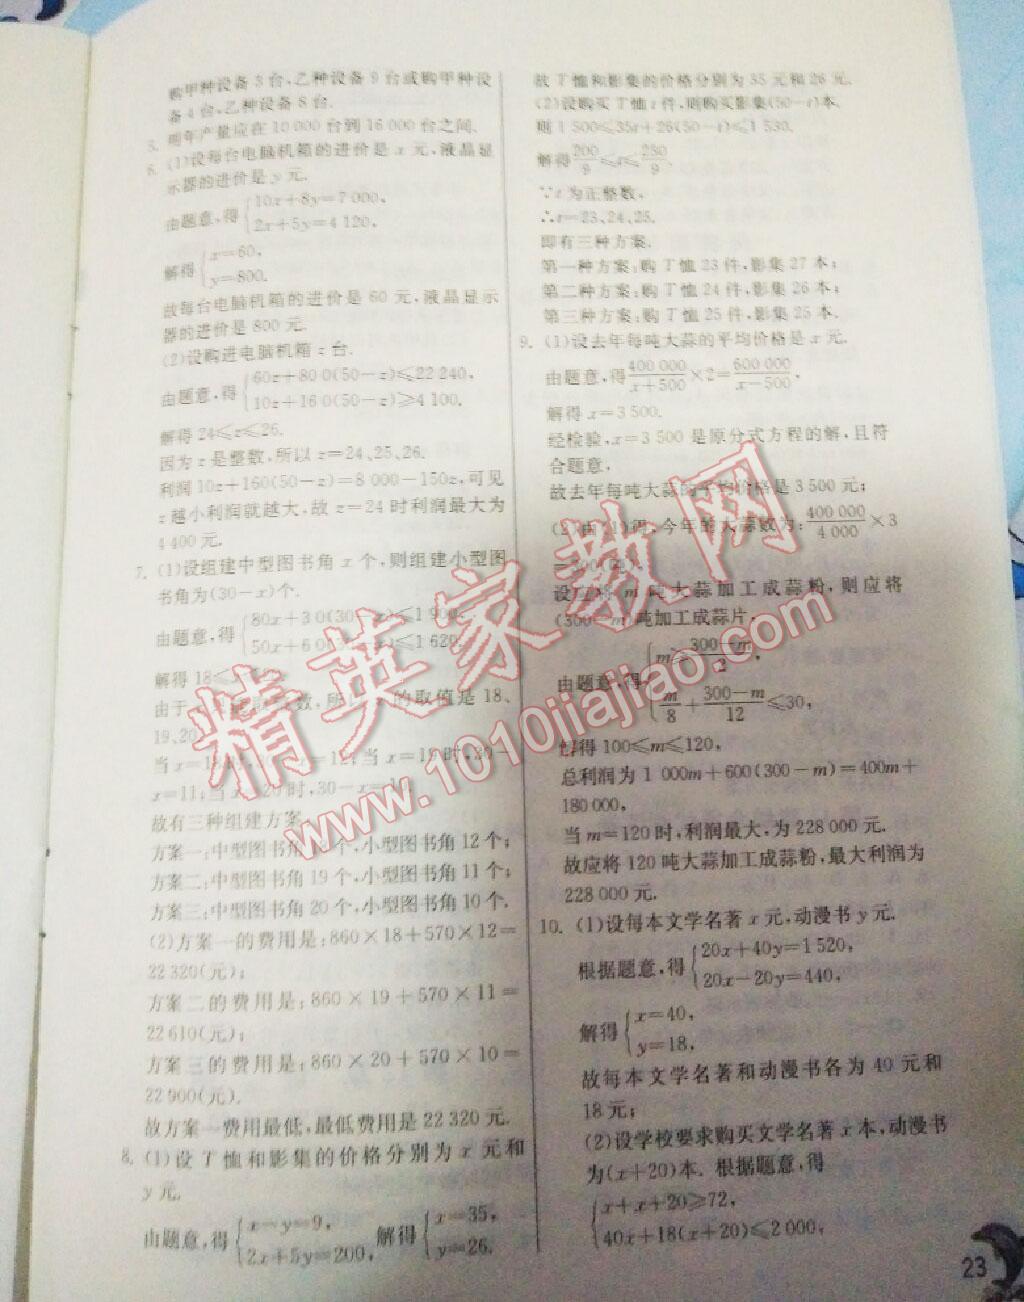 购甲种设备3台,乙种设备9台或购甲种设
备4台,乙种设备8台.
5. 明年产量应在10 000台到16 000台之间.
6. (1)设每台电脑机箱的进价是x元,液晶显
示器的进价是y元.
由题意,得{10x+8y=7 000,
2x+5y=4 120,
解得{x=60,
y=800.
故每台电脑机箱的进价是60元,液晶显示
器的进价是800元.
(2)设购进电脑机箱z台.
由题意,得{60z+80 0(50-z)≤22 240,
10z+16 0(50-z)≥4 100.
解得24≤z≤26.
因为z是整数,所以z=24、25、26.
利润10z+160(50-z)=8 000-150z,可见
z越小利润就越大,故z=24时利润最大为
4 400元.
7. (1)设组建中型图书角x个,则组建小型图
书角为(30-x)个.
由题意,得{80x+3 0(30-x)≤1 900,
50x+6 0(30-x)≤1 620.
解得18≤x≤20.
由于x只能取整数,所以x的取值是18、
19、20.
当x=18时,30-x=12;当x=19时,30-
x=11;当x=20时,30-x=10.
故有三种组建方案.
方案一:中型图书角18个,小型图书角12个;
方案二:中型图书角19个,小型图书角11个;
方案三:中型图书角20个,小型图书角10个.
(2)方案一的费用是:860×18+570×12=
22 320(元);
方案二的费用是:860×19+570×11=
22 610(元);
方案三的费用是:860×20+570×10=
22 900(元).
故方案一费用最低,最低费用是22 320元.
8. (1)设T恤和影集的价格分别为x元和
y元.
由题意,得{x-y=9,
2x+5y=200, 解得{x=35,
y=26.
故T恤和影集的价格分别为35元和26元.
(2)设购买T恤t件,则购买影集(50-t)本.
则1 500≤35t+26(50-t)≤1 530.
解得200/9≤t≤230/9.
∵t为正整数,
∴t=23、24、25.
即有三种方案.
第一种方案:购T恤23件,影集27本;
第二种方案:购T恤24件,影集26本;
第三种方案:购T恤25件,影集25本.
9. (1)设去年每吨大蒜的平均价格是x元.
由题意,得400 000/(x+500)×2=600 000/(x-500),
解得x=3 500.
经检验,x=3 500是原分式方程的解,且符
合题意,
故去年每吨大蒜的平均价格是3 500元;
(2)由(1)得,今年的大蒜数为:400 000/4 000×3
=300(吨).
设应将m吨大蒜加工成蒜粉,则应将
(300-m)吨加工成蒜片,
由题意,得{m≥(300-m)/2,
m/8+(300-m)/12≤30,
解得100≤m≤120,
总利润为1 000m+600(300-m)=400m+
180 000,
当m=120时,利润最大,为228 000元.
故应将120吨大蒜加工成蒜粉,最大利润为
228 000元.
10. (1)设每本文学名著x元,动漫书y元.
根据题意,得{20x+40y=1 520,
20x-20y=440,
解得{x=40,
y=18,
故每本文学名著和动漫书各为40元和
18元;
(2)设学校要求购买文学名著x本,动漫书
为(x+20)本. 根据题意,得
{x+x+20≥72,
40x+18(x+20)≤2 000,
23
精英家教网
www.1010jiajiao.com